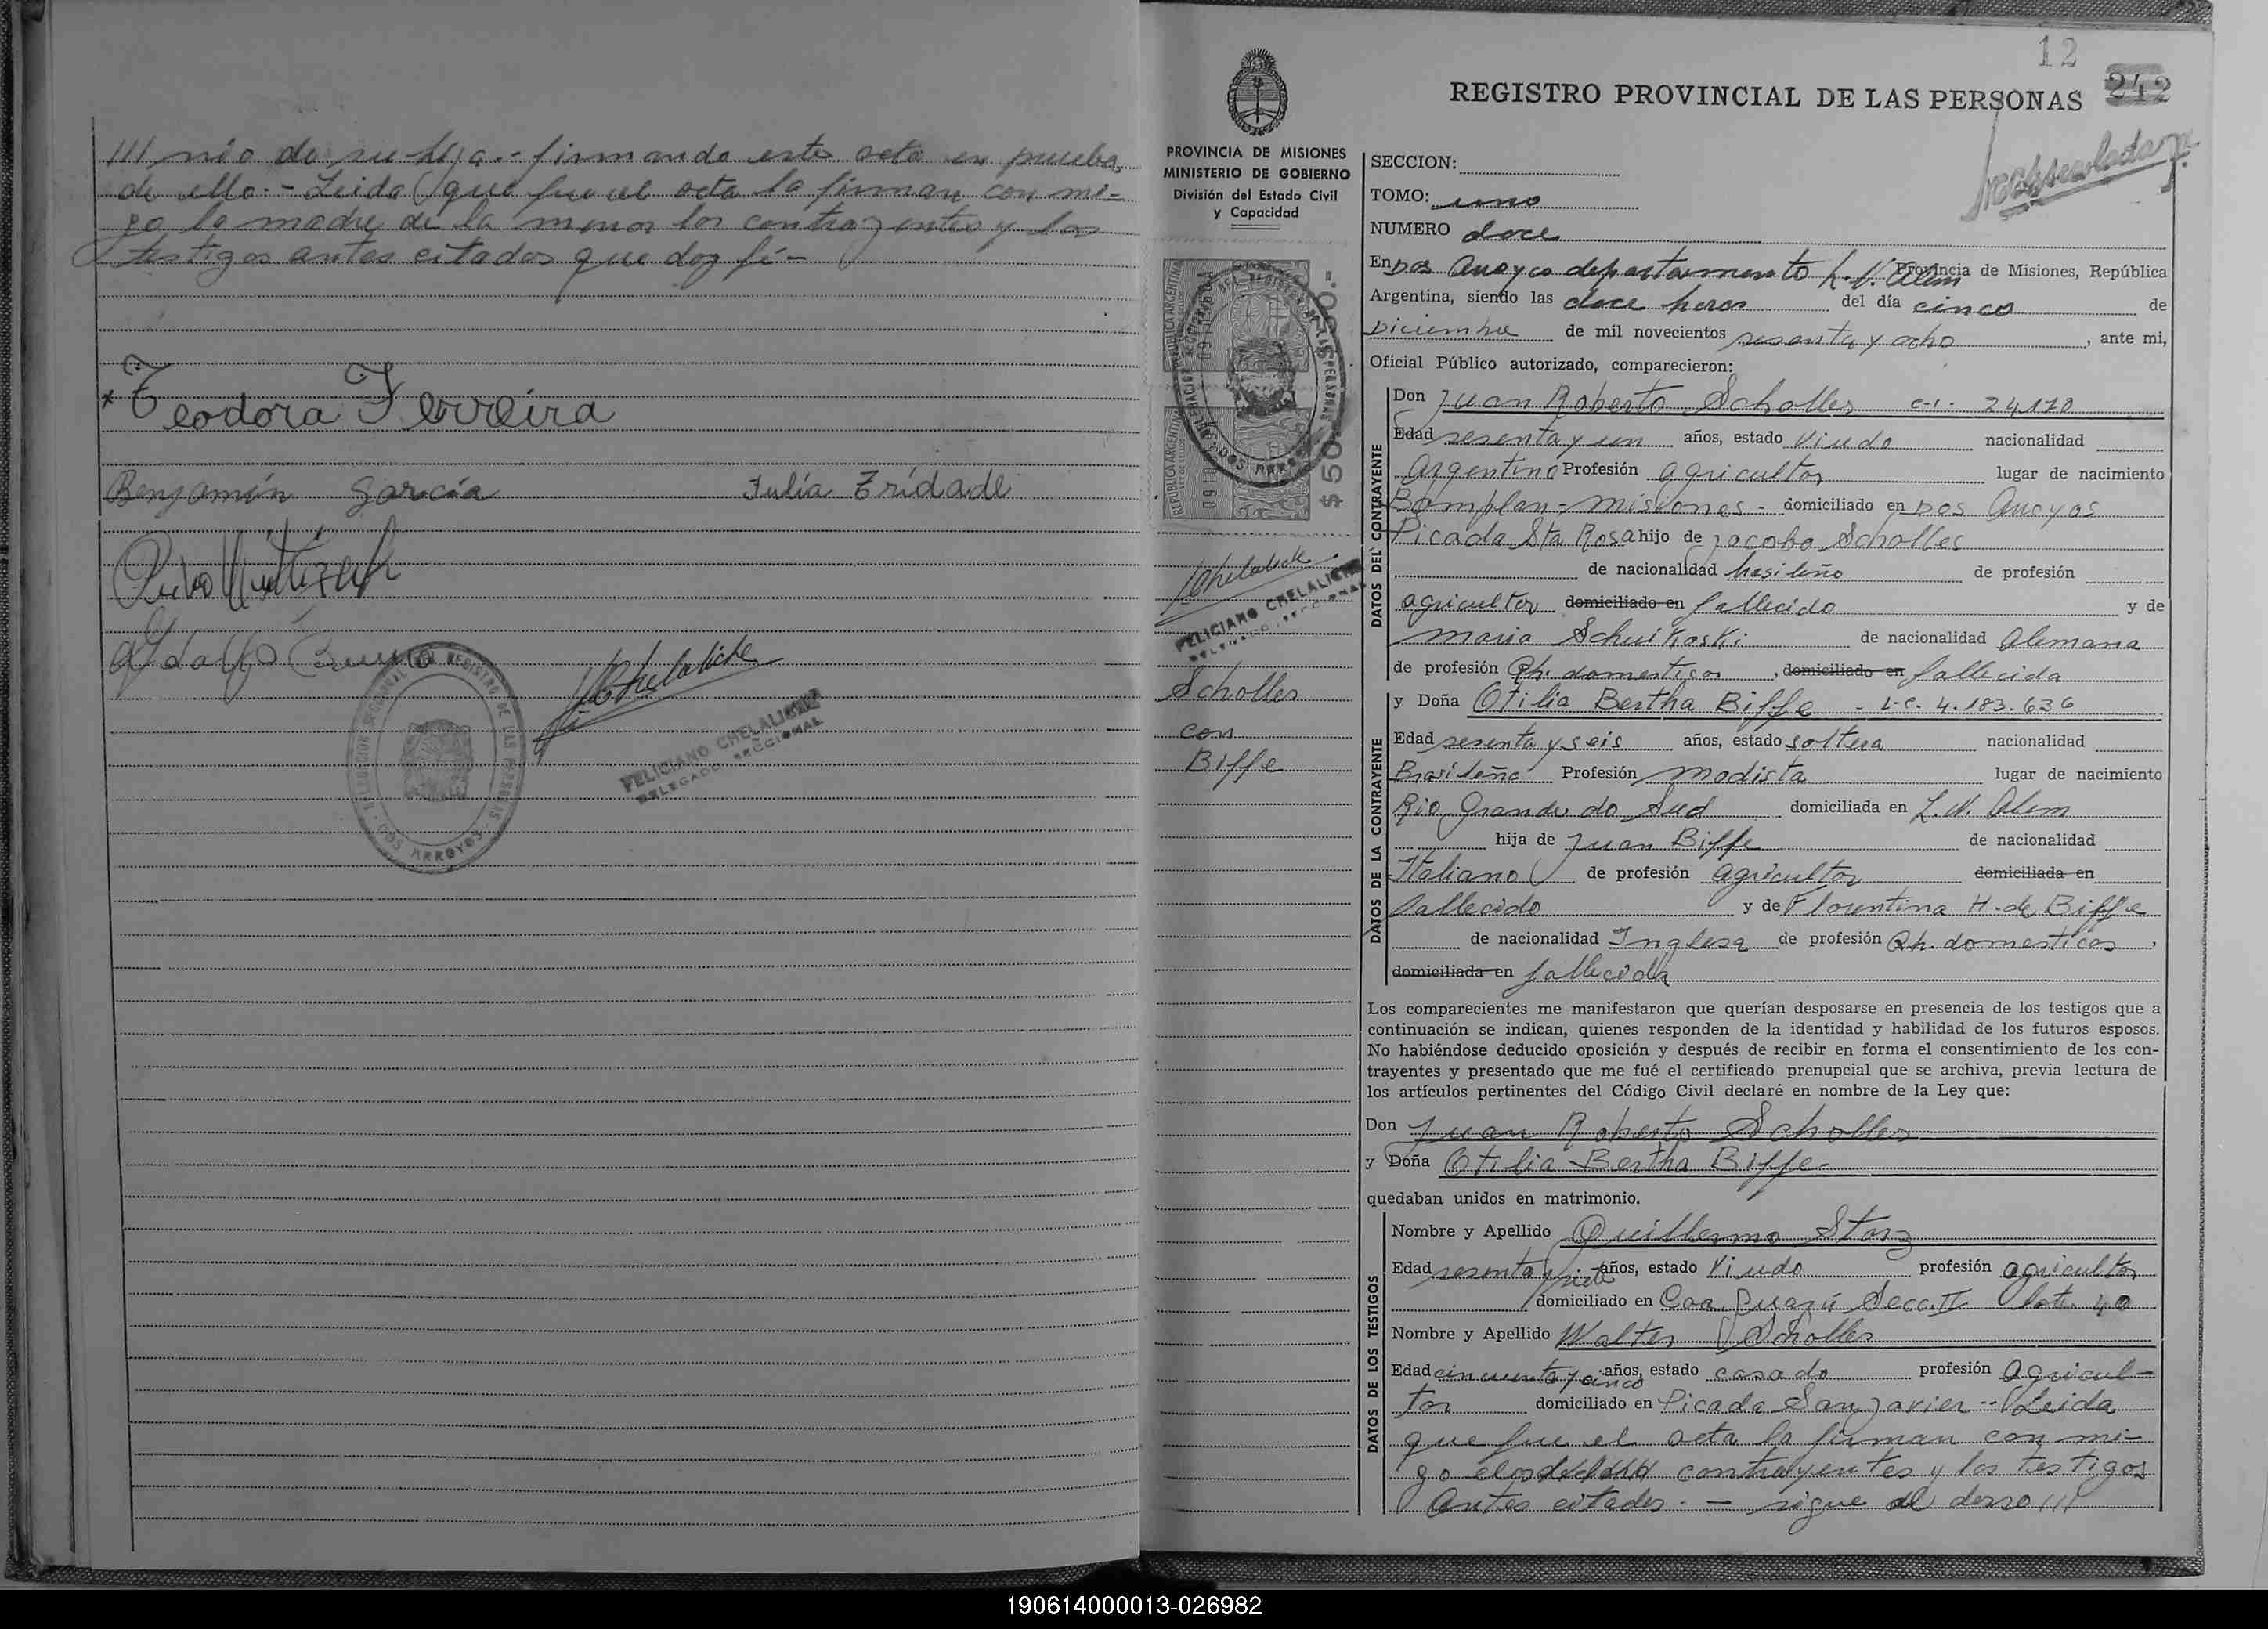 /// nio de su hija.- firmando esta acta en prueba
de ello.- Leida que fue el acta la firman con mi-
go la madre de la menor los contrayentes y los
testigos antes citados que doy fé-
Teodora Ferreira
Benjamín García Julia Trídade
Adolfo
DELEGACION SECCIONAL DEL REGISTRO DE LAS PERSONAS
DOS ARROYOS
FELICIANO CHELALICHE
DELEGADO SECCIONAL
12
REGISTRO PROVINCIAL DE LAS PERSONAS 242
PROVINCIA DE MISIONES
MINISTERIO DE GOBIERNO
División del Estado Civil
y Capacidad
REPUBLICA ARGENTINA
$ 50
FELICIANO CHELALICHE
DELEGADO SECCIONAL
Scholles
con
Biffe
SECCION:
TOMO: uno
NUMERO doce
En Dos Arroyos departamento L. N. Alem Provincia de Misiones, República
Argentina, siendo las doce horas del día cinco de
Diciembre de mil novecientos sesenta y ocho, ante mi,
Oficial Público autorizado, comparecieron:
DATOS DEL CONTRAYENTE
Don Juan Roberto Scholles C.I. 24170
Edad sesenta y un años, estado Viudo nacionalidad
Argentino Profesión agricultor lugar de nacimiento
Bomplan - Misiones - domiciliado en Dos Arroyos
Picada Sta Rosa hijo de Jacobo Scholles
de nacionalidad brasileño de profesión
agricultor domiciliado en fallecido y de
Maria Schuikoski de nacionalidad Alemana
de profesión Qh. domesticos, domiciliado en fallecida
y Doña Otilia Bertha Biffe - L.C. 4.183.636
DATOS DE LA CONTRAYENTE
Edad sesenta y seis años, estado soltera nacionalidad
Brasileña Profesión modista lugar de nacimiento
Rio Grande do Sud domiciliada en L. N. Alem
hija de Juan Biffe de nacionalidad
Italiano de profesión agricultor domiciliada en
fallecido y de Florentina H. de Biffe
de nacionalidad Inglesa de profesión Qh. domesticos,
domiciliada en fallecida
Los comparecientes me manifestaron que querían desposarse en presencia de los testigos que a
continuación se indican, quienes responden de la identidad y habilidad de los futuros esposos.
No habiéndose deducido oposición y después de recibir en forma el consentimiento de los con-
trayentes y presentado que me fué el certificado prenupcial que se archiva, previa lectura de
los artículos pertinentes del Código Civil declaré en nombre de la Ley que:
Don Juan Roberto Scholles
y Doña Otilia Bertha Biffe-
quedaban unidos en matrimonio.
DATOS DE LOS TESTIGOS
Nombre y Apellido Guillermo Storz
Edad sesenta y siete años, estado Viudo profesión agricultor
domiciliado en Caa Guazú Secc. II Lote 40
Nombre y Apellido Walter Scholles
Edad cincuenta y cinco años, estado casado profesión Agricul-
tor domiciliado en Picada San Javier -- Leida
que fue el acta la firman con mi-
go contrayentes y los testigos
antes citados. - sigue al dorso ///
190614000013-026982